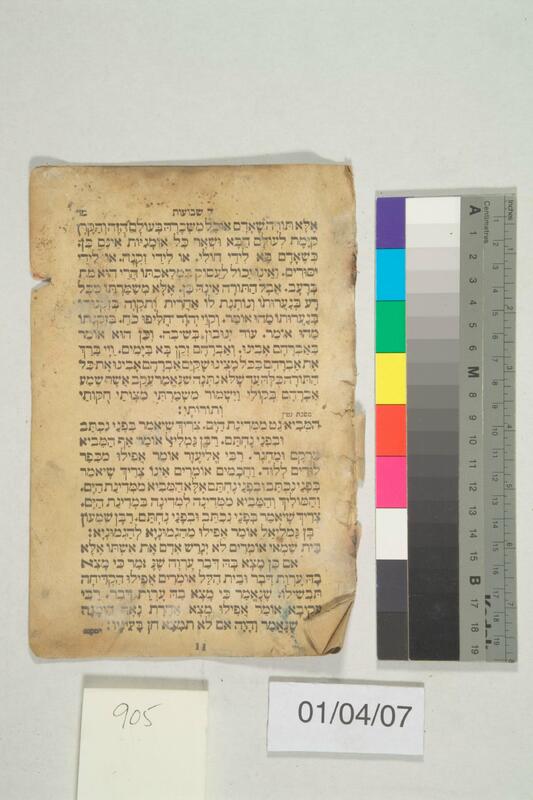 ד שבועות מד
אֶלָּא תּוֹרָה שֶׁאָדָם אוֹכֵל מִשְּׂכָרָהּ בָּעוֹלָם הַזֶּה וְהַקֶּרֶן
קַיֶּמֶת לְעוֹלָם הַבָּא וּשְׁאָר כָּל אוּמָנִיּוֹת אֵינָם כֵּן.
כְּשֶׁאָדָם בָּא לִידֵי חוֹלִי. אוֹ לִידֵי זִקְנָה. אוֹ לִידֵי
יִסּוּרִים. וְאֵינוֹ יָכוֹל לַעֲסוֹק בִּמְלַאכְתּוֹ הֲרֵי הוּא מֵת
בְּרָעָב. אֲבָל הַתּוֹרָה אֵינָהּ כֵּן. אֶלָּא מְשַׁמַּרְתּוֹ מִכָּל
רָע בְּנַעֲרוּתוֹ וְנוֹתֶנֶת לוֹ אַחֲרִית וְתִקְוָה בְּזִקְנוּתוֹ
בְּנַעֲרוּתוֹ מַהוּ אוֹמֵר. וְקוֹיֵ יְהוָֹה יַחֲלִיפוּ כֹחַ. בְּזִקְנָתוֹ
מַהוּ אוֹמֵר. עוֹד יְנוּבוּן בְּשֵׂיבָה. וְכֵן הוּא אוֹמֵר
בְּאַבְרָהָם אָבִינוּ. וְאַבְרָהָם זָקֵן בָּא בַּיָּמִים. וַיְיָ בֵּרַךְ
אֶת אַבְרָהָם בַּכֹּל מָצִינוּ שֶׁקִּיֵּם אַבְרָהָם אָבִינוּ אֶת כָּל
הַתּוֹרָה כֻּלָּהּ עַד שֶׁלֹּא נִתְּנָה שֶׁנֶּאֱמַר עֵקֶב אֲשֶׁר שָׁמַע
אַבְרָהָם בְּקוֹלִי וַיִּשְׁמוֹר מִשְׁמַרְתִּי מִצְוֹתַי חֻקּוֹתַי
וְתוֹרוֹתָי:
מסכת גטין
הַמֵּבִיא גֵט מִמְּדִינַת הַיָּם. צָרִיךְ שֶׁיֹּאמַר בְּפָנַי נִכְתַּב
וּבְפָנַי נֶחְתַּם. רַבָּן גַּמְלִיאֵל אוֹמֵר אַף הַמֵּבִיא
מֵרֶקֶם וּמֵחֶגֶר. רַבִּי אֱלִיעֶזֶר אוֹמֵר אֲפִילוּ מִכְּפַר
לוּדִים לְלוֹד. וַחֲכָמִים אוֹמְרִים אֵינוֹ צָרִיךְ שֶׁיֹּאמַר
בְּפָנַי נִכְתַּב וּבְפָנַי נֶחְתַּם אֶלָּא הַמֵּבִיא מִמְּדִינַת הַיָּם.
וְהַמּוֹלִיךְ וְהַמֵּבִיא מִמְּדִינָה לִמְדִינָה בִּמְדִינַת הַיָּם.
צָרִיךְ שֶׁיֹּאמַר בְּפָנַי נִכְתַּב וּבְפָנַי נֶחְתַּם. רַבָּן שִׁמְעוֹן
בֶּן גַּמְלִיאֵל אוֹמֵר אֲפִילוּ מֵהֶגְמוֹנְיָא לְהֶגְמוֹנְיָא:
בֵּית שַׁמַּאי אוֹמְרִים לֹא יְגָרֵשׁ אָדָם אֶת אִשְׁתּוֹ אֶלָּא
אִם כֵּן מָצָא בָהּ דְּבַר עֶרְוָה שֶׁנֶּאֱמַר כִּי מָצָא
בָהּ עֶרְוַת דָּבָר וּבֵית הִלֵּל אוֹמְרִים אֲפִילוּ הִקְדִּיחָה
תַבְשִׁילוֹ שֶׁנֶּאֱמַר כִּי מָצָא בָהּ עֶרְוַת דָּבָר. רַבִּי
עֲקִיבָא אוֹמֵר אֲפִילוּ מָצָא אַחֶרֶת נָאָה הֵימֶנָּה
שֶׁנֶּאֱמַר וְהָיָה אִם לֹא תִמְצָא חֵן בְּעֵינָיו:
11
905
01/04/07
Inches
Centimetres
A 1 2 3 4 5 6 M 8 9 10 11 12 13 14 15 B 17 18 19